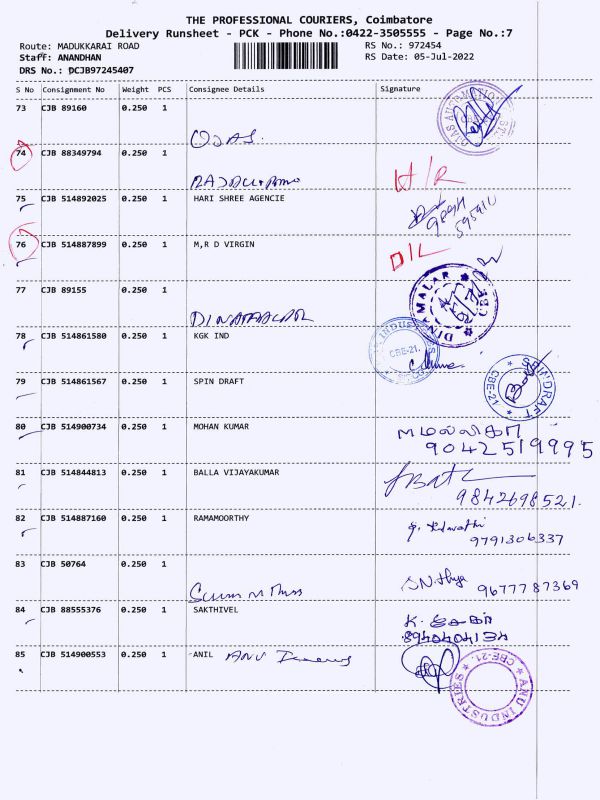 THE PROFESSIONAL COURIERS, Coimbatore
Delivery Runsheet - PCK - Phone No.:0422-3505555 - Page No.:7
Route: MADUKKARAI ROAD RS No.: 972454
Staff: ANANDHAN RS Date: 05-Jul-2022
DRS No.: DCJB97245407
S No Consignment No Weight PCS Consignee Details Signature
73 CJB 89160 0.250 1
OJAS
74 CJB 88349794 0.250 1
H/R
75 CJB 514892025 0.250 1 HARI SHREE AGENCIE
76 CJB 514887899 0.250 1 M,R D VIRGIN
D/L
77 CJB 89155 0.250 1
DINAMALAR CBE
DINAMALAR
78 CJB 514861580 0.250 1 KGK IND
INDUS CBE-21.
79 CJB 514861567 0.250 1 SPIN DRAFT
SPINDRAFT CBE-21
80 CJB 514900734 0.250 1 MOHAN KUMAR
மல்லிகா
9042519995
81 CJB 514844813 0.250 1 BALLA VIJAYAKUMAR
9842698521.
82 CJB 514887160 0.250 1 RAMAMOORTHY
9791306337
83 CJB 50764 0.250 1
9677787369
84 CJB 88555376 0.250 1 SAKTHIVEL
8940404134
85 CJB 514900553 0.250 1 ANIL ANU
ANU INDUSTRIES CBE-21.